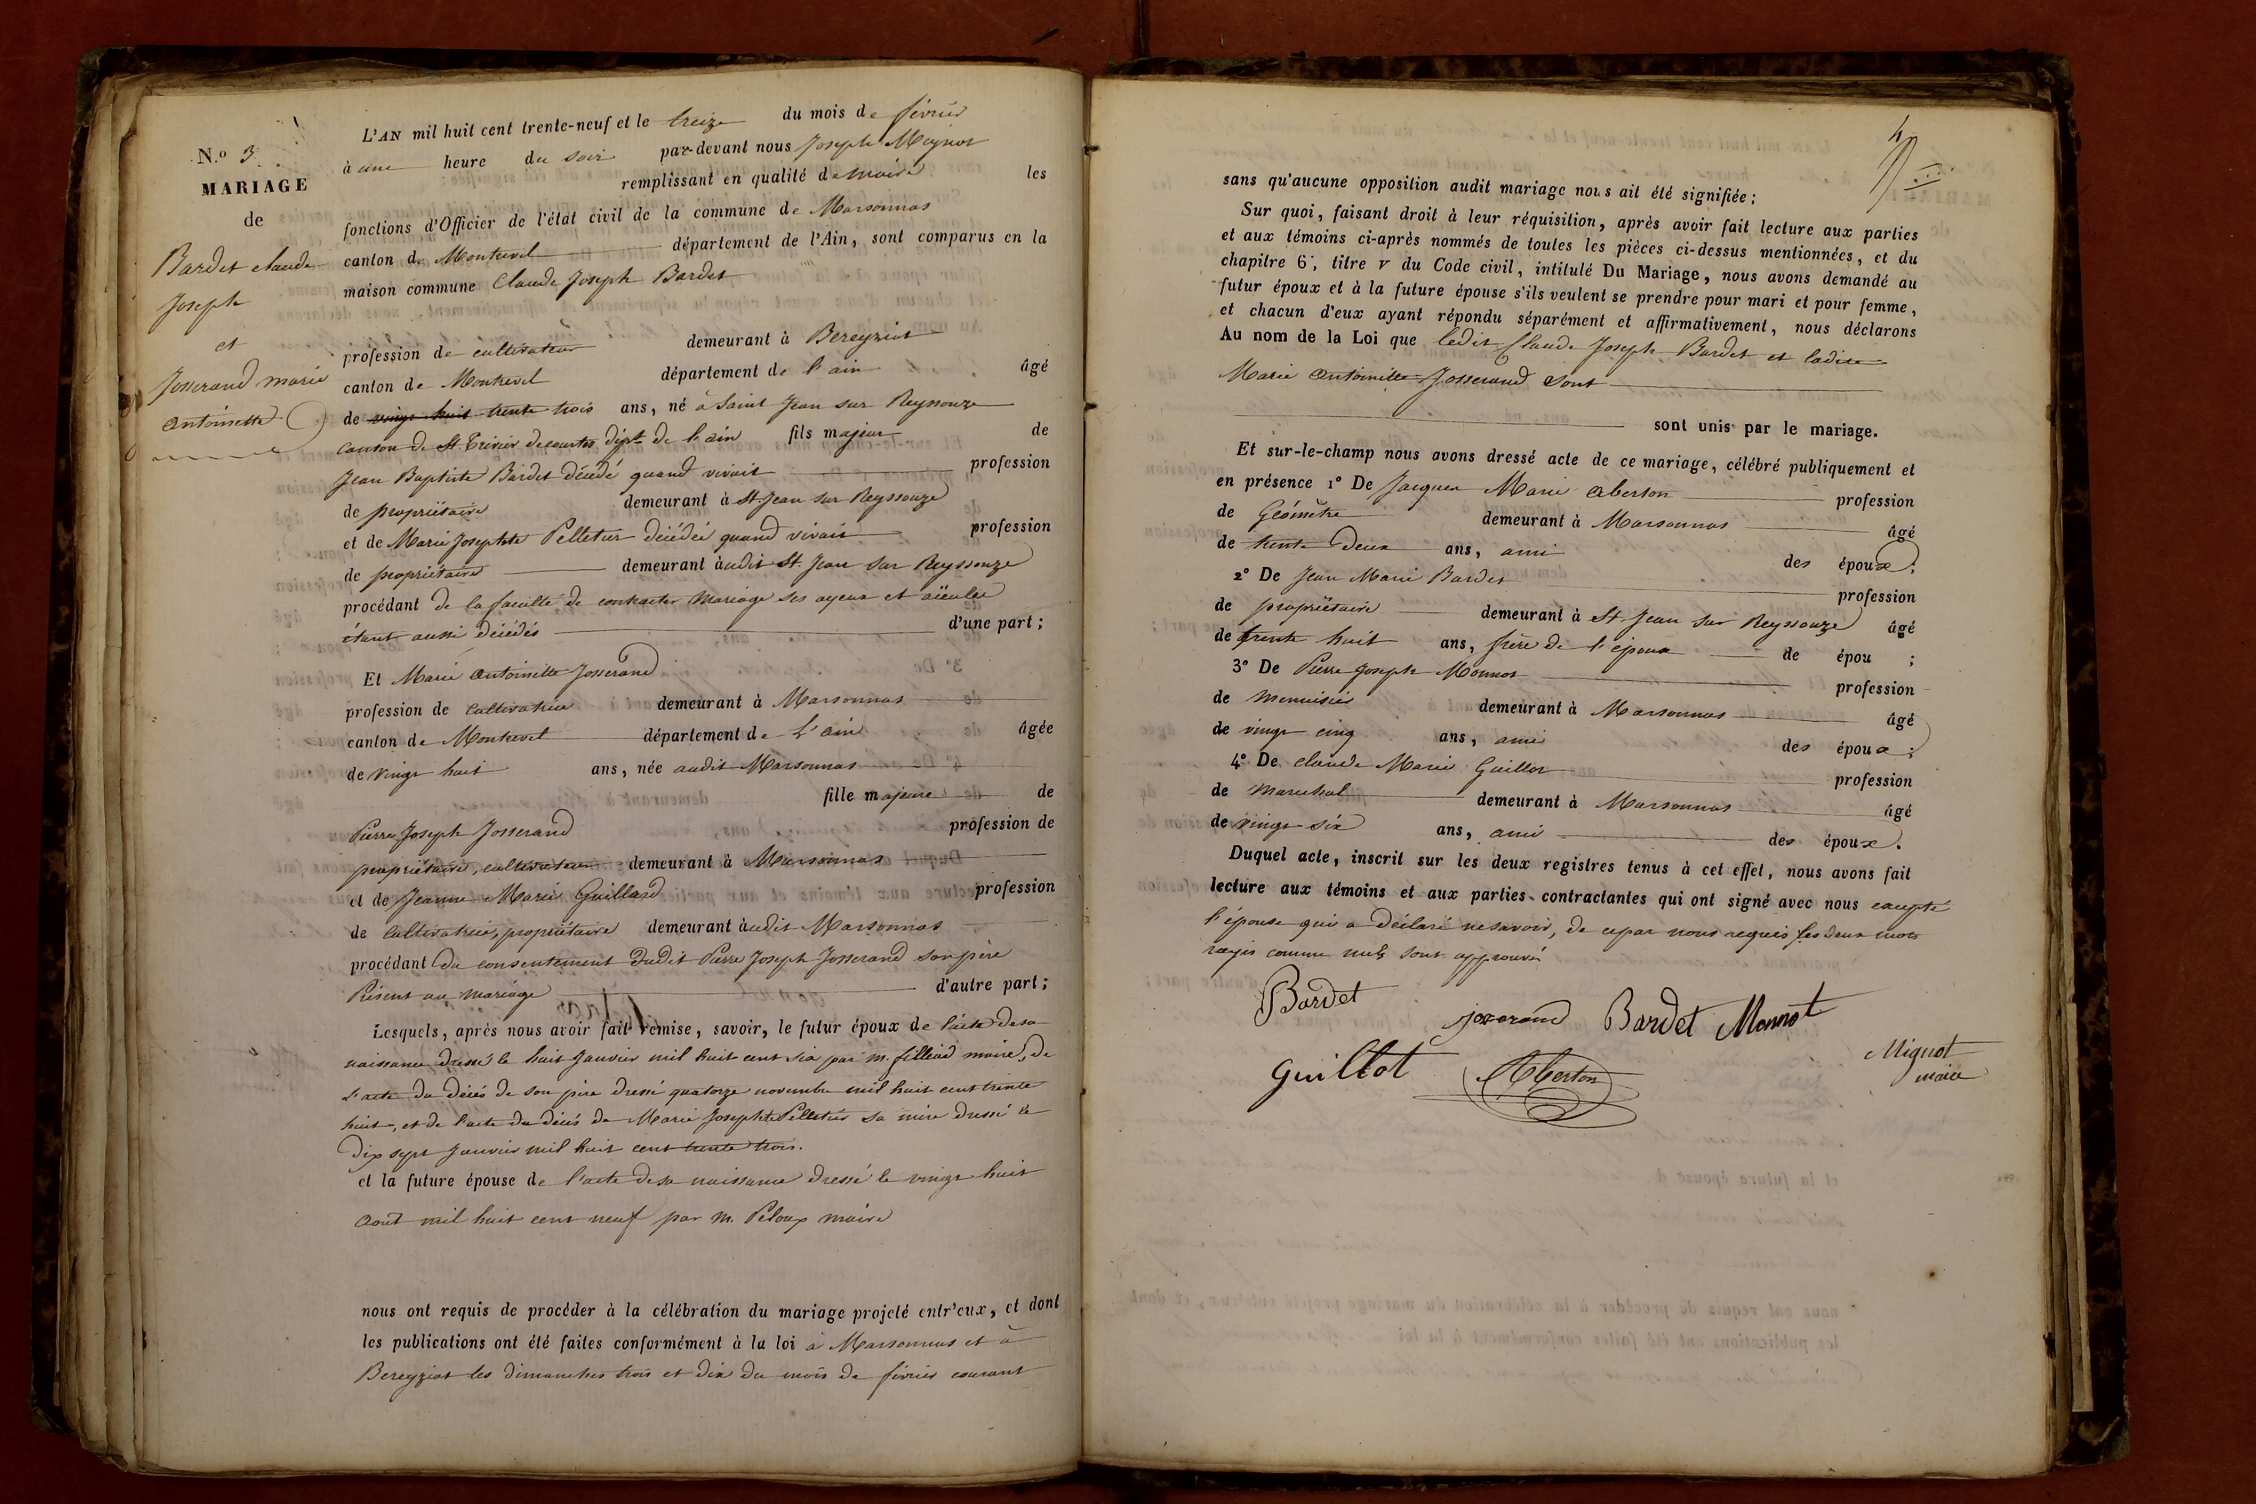 N.o 3
MARIAGE
de
Bardet claude
Joseph
et
Josserand marie
antoinette
L'AN mil huit cent trente-neuf et le treize du mois de février
à une heure du soir par-devant nous Joseph Mignot
remplissant en qualité de maire les
fonctions d'Officier de l'état civil de la commune de Marsonnas
canton de Montrevel département de l'Ain, sont comparus en la
maison commune Claude Joseph Bardet
profession de cultivateur demeurant à Bereyziat
canton de Montrevel département de l'ain âgé
de vingt huit trente trois ans, né à Saint Jean sur Reyssouze
canton de St Trivier de courtes dépt de l'ain fils majeur de
Jean Baptiste Bardet décédé quand vivait profession
de propriétaire demeurant à St Jean sur Reyssouze
et de Marie Josephte Pelletier décédée quand vivait profession
de propriétaire demeurant audit St Jean sur Reyssouze
procédant de la faculté de contracter mariage ses ayeux et aïeules
étant aussi décédés d'une part ;
Et Marie antoinette Josserand
profession de cultivatrice demeurant à Marsonnas
canton de Montrevel département de L'ain âgée
de vingt huit ans, née audit Marsonnas
fille majeure de
Pierre Joseph Josserand profession de
propriétaire, cultivateur demeurant à Marsonnas
et de Jeanne Marie Guillard profession
de cultivatrice, propriétaire demeurant audit Marsonnas
procédant du consentement dudit Pierre Joseph Josserand son père
Présent au mariage d'autre part ;
Lesquels, après nous avoir fait remise, savoir, le futur époux de l'acte de sa
naissance dressé le huit Janvier mil huit cent six par m. maire, de
L'acte du décés de son père dressé quatorze novembre mil huit cent trente
huit, et de l'acte du décés de Marie Josephte Pelletier sa mère dressé le
Dix sept Janvier mil huit cent trente trois.
et la future épouse de l'acte de sa naissance dressé le vingt huit
août mil huit cent neuf par m. Peloux maire
nous ont requis de procéder à la célébration du mariage projeté entr'eux, et dont
les publications ont été faites conformément à la loi à Marsonnas et à
Bereyziat les dimanches trois et dix du mois de février courant
4
sans qu'aucune opposition audit mariage nous ait été signifiée ;
Sur quoi, faisant droit à leur réquisition, après avoir fait lecture aux parties
et aux témoins ci-après nommés de toutes les pièces ci-dessus mentionnées, et du
chapitre 6, titre v du Code civil, intitulé Du Mariage, nous avons demandé au
futur époux et à la future épouse s'ils veulent se prendre pour mari et pour femme,
et chacun d'eux ayant répondu séparément et affirmativement, nous déclarons
Au nom de la Loi que ledit Claude Joseph Bardet et ladite
Marie antoinette Josserand sont
sont unis par le mariage.
Et sur-le-champ nous avons dressé acte de ce mariage, célébré publiquement et
en présence 1° De Jacques Marie Aberton profession
de Géomètre demeurant à Marsonnas âgé
de trente Deux ans, ami des époux ;
2° De Jean Marie Bardet profession
de propriétaire demeurant à St Jean sur Reyssouze âgé
de trente huit ans, frère de l'époux de épou ;
3° De Pierre Joseph Monnot profession
de menuisier demeurant à Marsonnas âgé
de vingt cinq ans, ami des époux ;
4° De claude Marie Guillot profession
de marechal demeurant à Marsonnas âgé
de vingt six ans, ami des époux.
Duquel acte, inscrit sur les deux registres tenus à cet effet, nous avons fait
lecture aux témoins et aux parties contractantes qui ont signé avec nous excepté
l'épouse qui a déclaré ne savoir, de ce par nous requis les deux mots
rayés comme nuls sont approuvés
Bardet Josserand Bardet Monnot
Guillot Aberton Mignot
maire